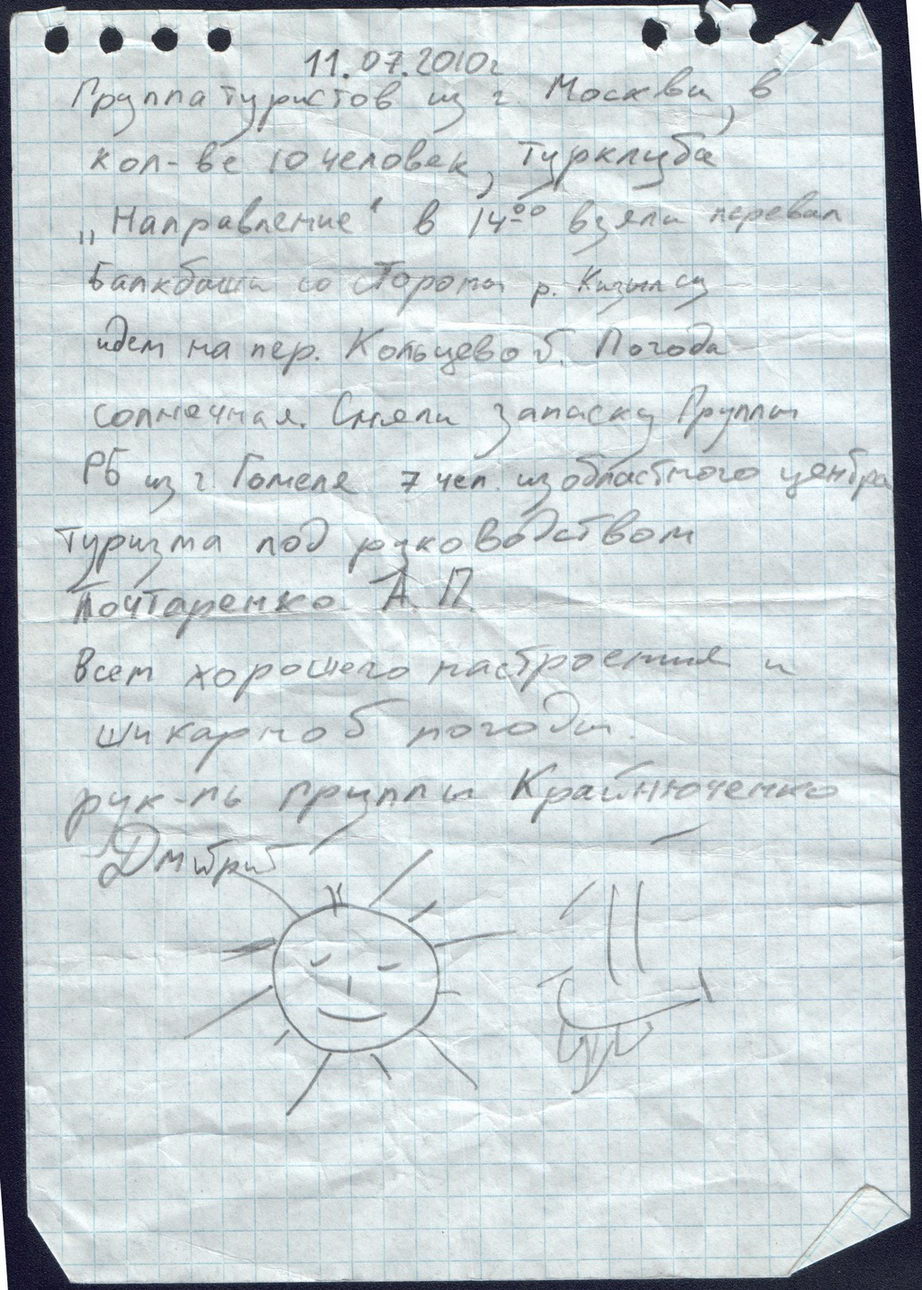 11.07.2010г
Группа туристов из г. Москвы, в
кол-ве 10 человек, Турклуба
„Направление" в 14⁰⁰ взяли перевал
Балкбаши со стороны р. Кизылсу
идем на пер. Кольцевой. Погода
солнечная. Сняли записку Группы
РБ из г. Гомеля 7 чел. из областного центра
Туризма под руководством
Почтаренко А. П.
Всем хорошего настроения и
шикарной погоды.
рук-ль группы Крайнюченко
Дмитрий